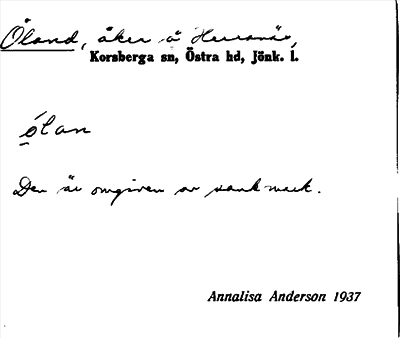 Öland, åker å Herranäs,
Korsberga sn, Östra hd, Jönk. l.
ólan
Den är omgiven av sank mark.
Annalisa Anderson 1937